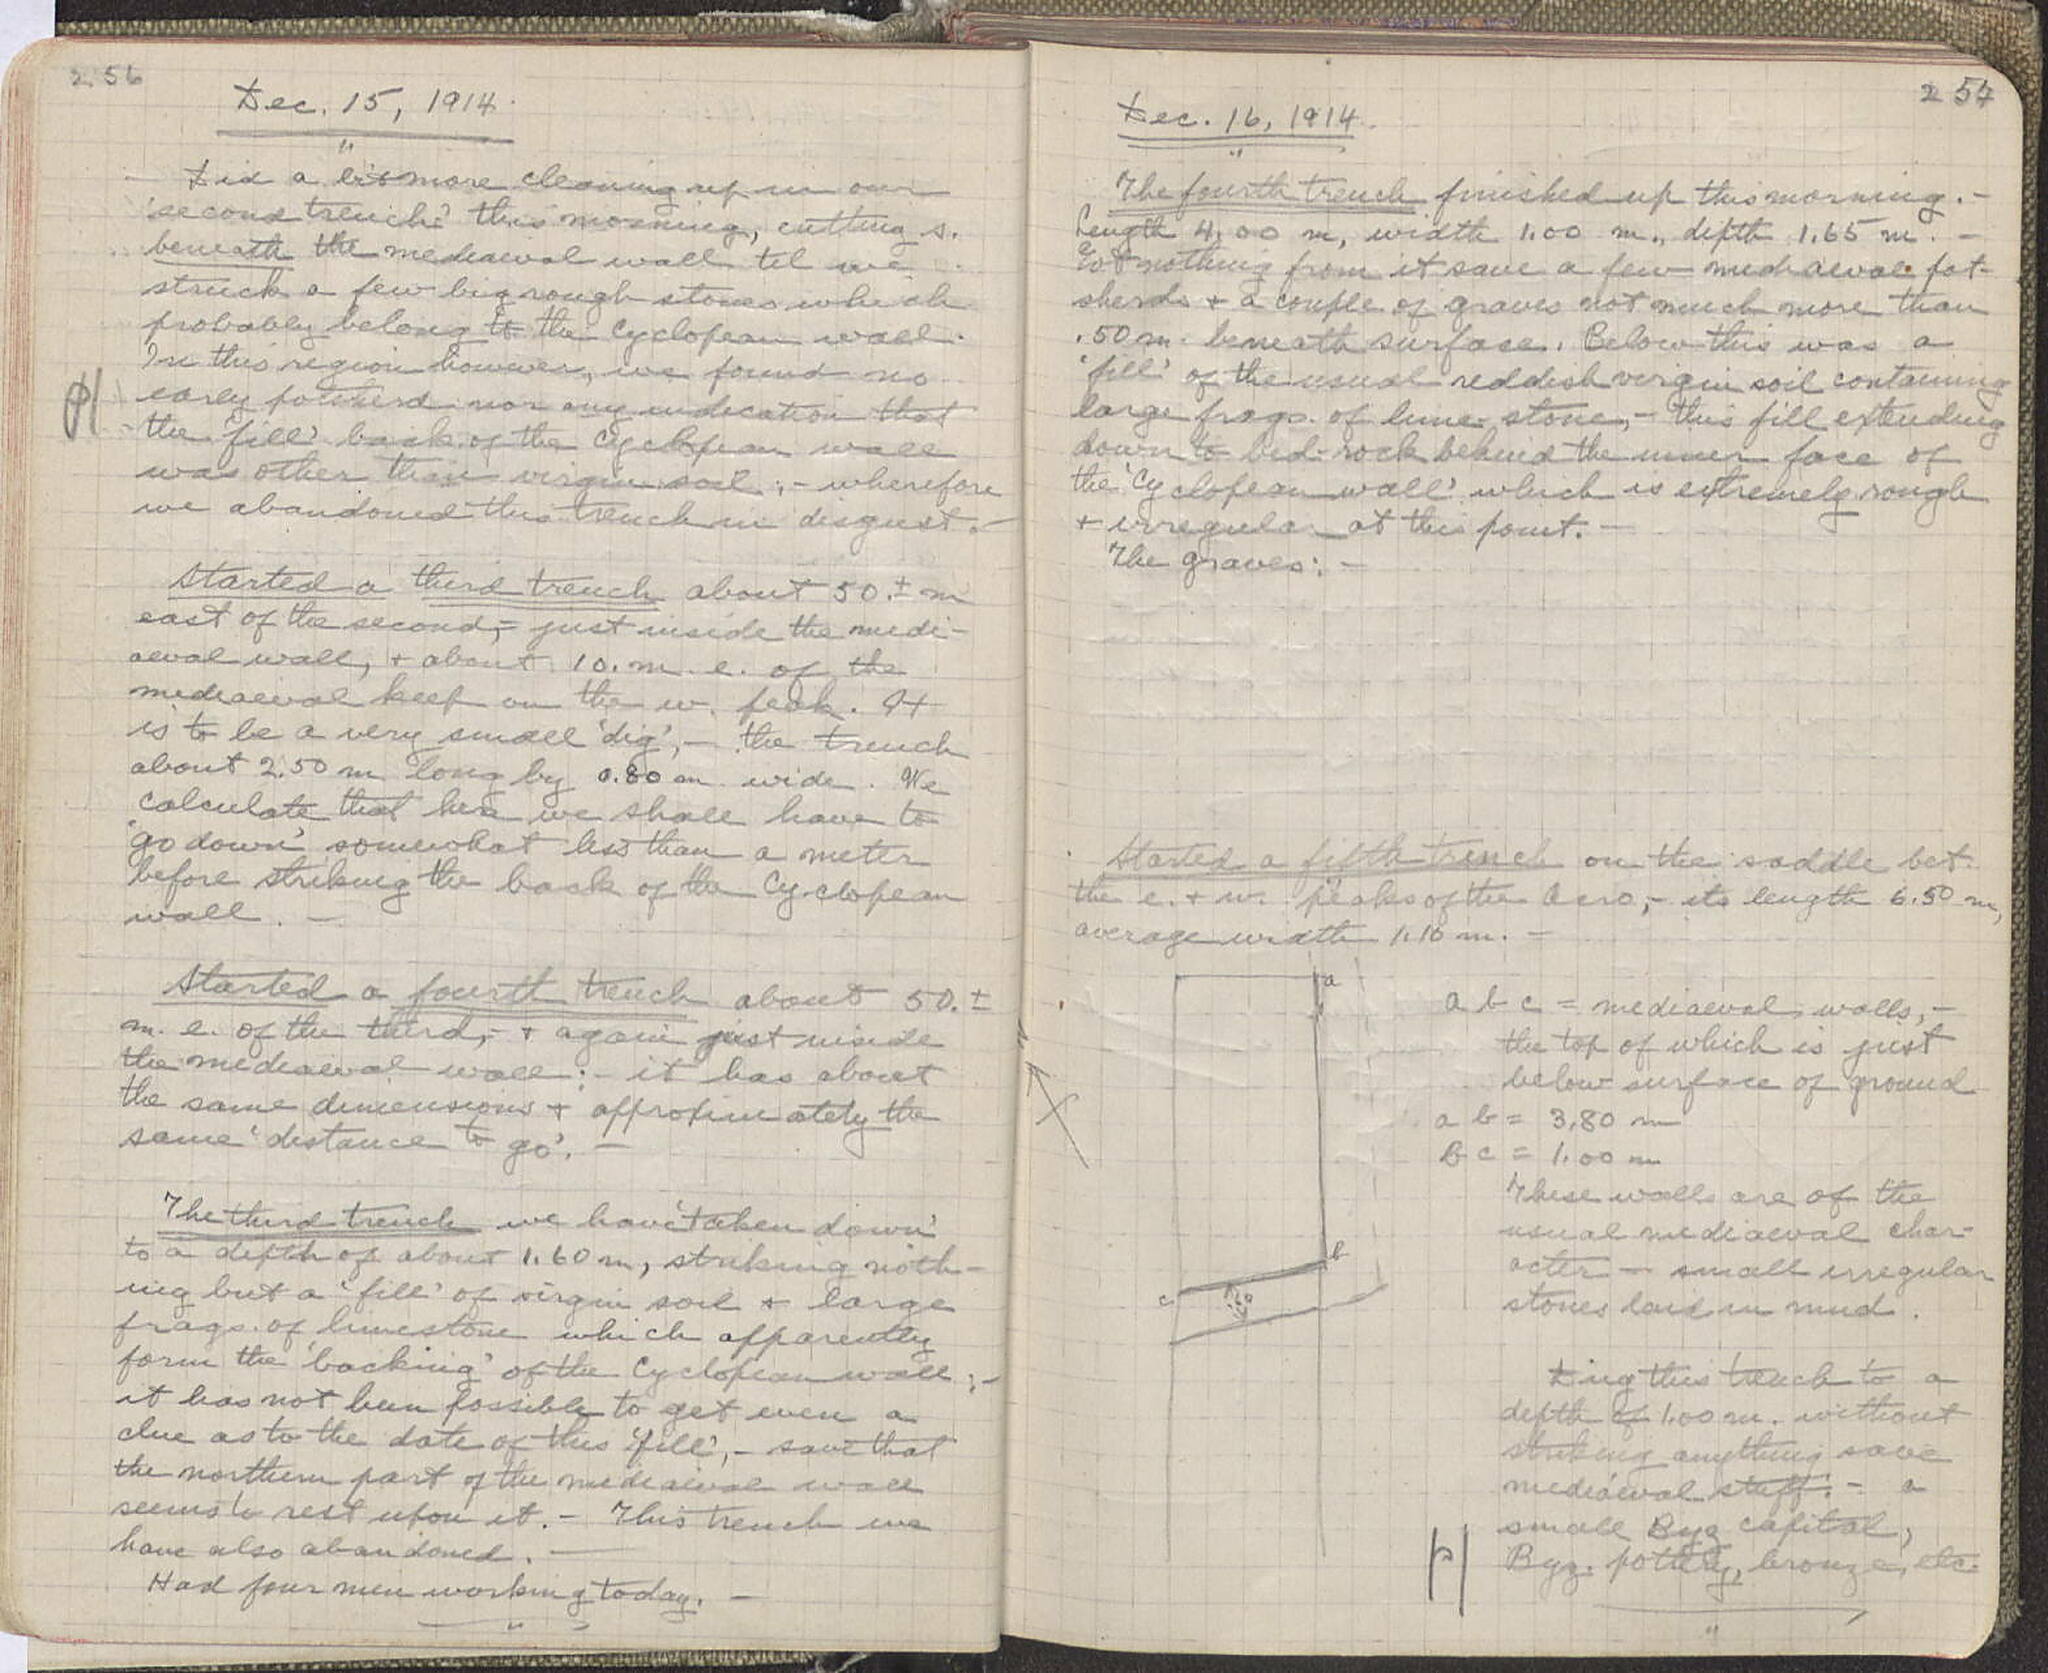 256
Dec. 15, 1914.
"
Did a bit more cleaning up in our
'second trench' this morning, cutting s.
beneath the mediaeval wall til we
struck a few big rough stones which
probably belong to the Cyclopean wall.
In this region however, we found no
early potsherd nor any indication that
the 'fill' back of the Cyclopean wall
was other than virgin soil; - wherefore
we abandoned this trench in disgust. -
Started a third trench about 50. ± m
east of the second, - just inside the medi-
aeval wall, + about 10. m. e. of the
mediaeval keep on the w. peak. It
is to be a very small 'dig', - the trench
about 2.50 m long by 0.80 m wide. We
calculate that here we shall have to
'go down' somewhat less than a meter
before striking the back of the Cyclopean
wall. -
Started a fourth trench about 50. ±
m. e. of the third, - + again just inside
the mediaeval wall; - it has about
the same dimensions + approximately the
same 'distance to go'. -
The third trench we have 'taken down'
to a depth of about 1.60 m, striking noth-
ing but a 'fill' of virgin soil + large
frags. of limestone which apparently
form the 'backing' of the Cyclopean wall; -
it has not been possible to get even a
clue as to the date of this 'fill', - save that
the northern part of the mediaeval wall
seems to rest upon it. - This trench we
have also abandoned. -
Had four men working today. -
"
257
Dec. 16, 1914.
"
The fourth trench finished up this morning. -
Length 4.00 m, width 1.00 m., depth 1.65 m. -
Got nothing from it save a few mediaeval pot-
sherds + a couple of graves not much more than
.50 m. beneath surface. Below this was a
'fill' of the usual reddish virgin soil containing
large frags. of lime-stone, - this fill extending
down to bed-rock behind the inner face of
the 'Cyclopean wall' which is extremely rough
+ irregular at this point. -
The graves: -
Started a fifth trench on the saddle bet.
the e. + w. peaks of the Acro, - its length 6.50 m,
average width 1.10 m. -
a
b
c
a b c = mediaeval walls, -
the top of which is just
below surface of ground
a b = 3,80 m
b c = 1.00 m
These walls are of the
usual mediaeval char-
acter - small irregular
stones laid in mud.
Dug this trench to a
depth of 1.00 m. without
striking anything save
mediaeval stuff. - a
small Byz capital,
Byz. pottery, bronze, etc.
"